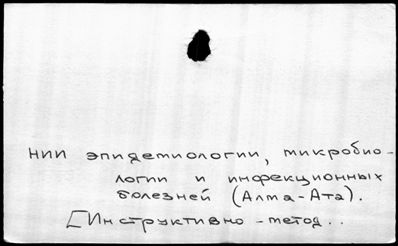 НИИ эпидемиологии, микробио-
логии и инфекционных
болезней (Алма-Ата).
[Инструктивно-метод..